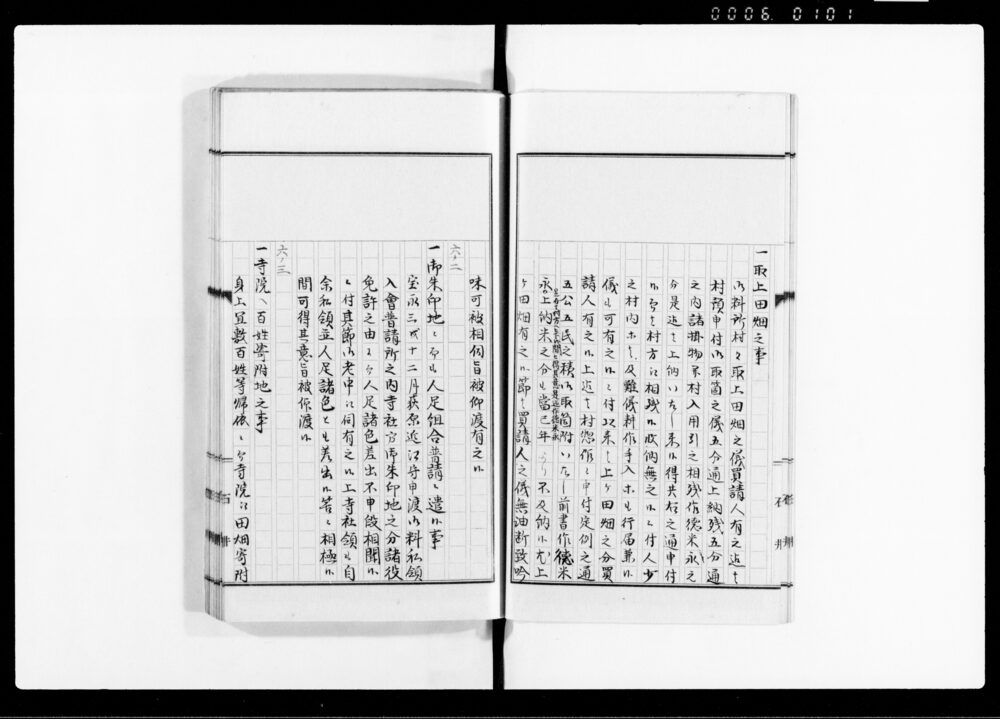 0006. 0101
一取上田畑之事
御料所村々取上田畑之儀買請人有之迄ハ
村預申付御取箇之儀五分通上納残五分通
之内諸掛物村入用引之相残作徳米永之
分是迄ハ上納いたし来候得共右之通申付
候而ハ村方江相残候収納無之候ニ付人少
之村内ホハ及難儀耕作手入ホも行届兼候
儀も可有之候ニ付以来ハ上ケ田畑之分買
請人有之候上迄ハ村惣作ニ申付定例之通
五公五民之積御取箇附いたし前書作徳米
永上納米之分も當巳年より不及納候尤上
ケ田畑有之候節ハ買請人之儀無油断致吟
味可被相伺旨被仰渡有之候
六ノ二
一御朱印地ニ而も人足組合普請ニ遣候事
宝永三戌十二月荻原近江守申渡御料私領
入會普請所之内寺社方御朱印地之分諸役
免許之由ニ而人足諸色差出不申段相聞候
ニ付其節御老中江伺有之候上寺社領も自
余私領並人足諸色とも差出候筈ニ相極候
間可得其意旨被仰渡候
六ノ三
一寺院ヘ百姓寄附地之事
身上宜敷百姓等帰依ニ而寺院江田畑寄附